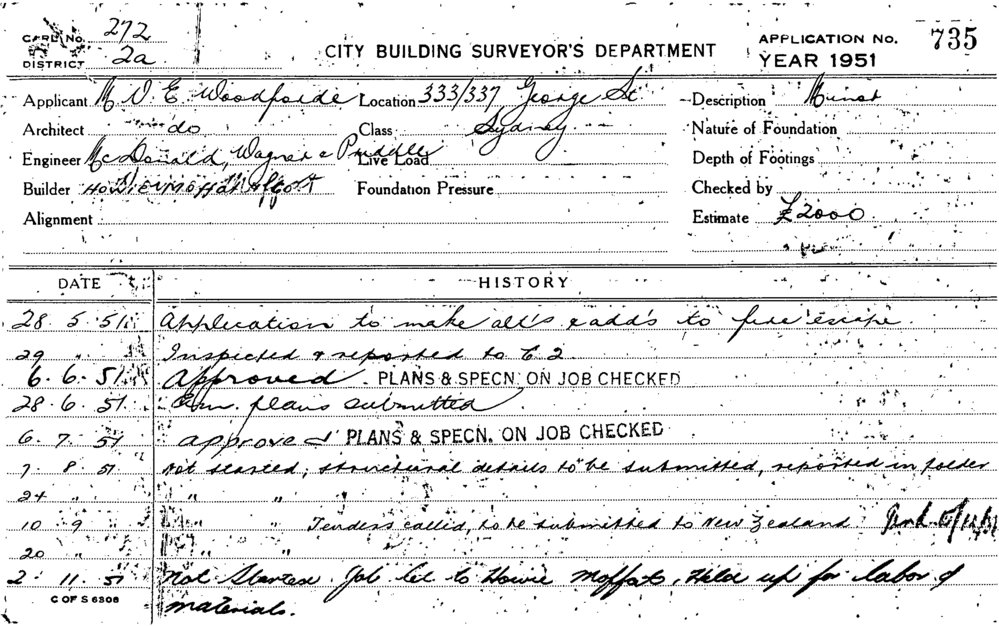 CARD No. 272
DISTRICT 2a
CITY BUILDING SURVEYOR'S DEPARTMENT
APPLICATION No. 735
YEAR 1951
Applicant M V. E. Woodforde Location 333/337 George St. Description Minor
Architect do Class Sydney Nature of Foundation
Engineer McDonald, Wagner & Priddle Live Load Depth of Footings
Builder Howie Moffat & Co Pt Foundation Pressure Checked by
Alignment Estimate £2000
DATE HISTORY
28 5 51 Application to make alt's & add's to fire escape
29 " Inspected & reported to C 2
6. 6. 51 Approved PLANS & SPECN. ON JOB CHECKED
28. 6. 51 Am. plans submitted
6. 7. 51 approved PLANS & SPECN. ON JOB CHECKED
7 8 51 Not started, structural details to be submitted, reported in folder
24 " " "
10 9 " " Tenders called, to be submitted to New Zealand
20 " " "
2. 11. 51 Not Started. Job let to Howie Moffats, Held up for labor &
materials.
C OF S 6306